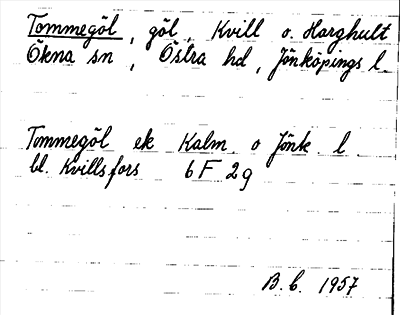 Tommegöl, göl, Kvill o. Harghult
Ökna sn, Östra hd, Jönköpings l.
Tommegöl ek Kalm o Jönk l
bl. Kvillsfors 6F 2g
B.b. 1957